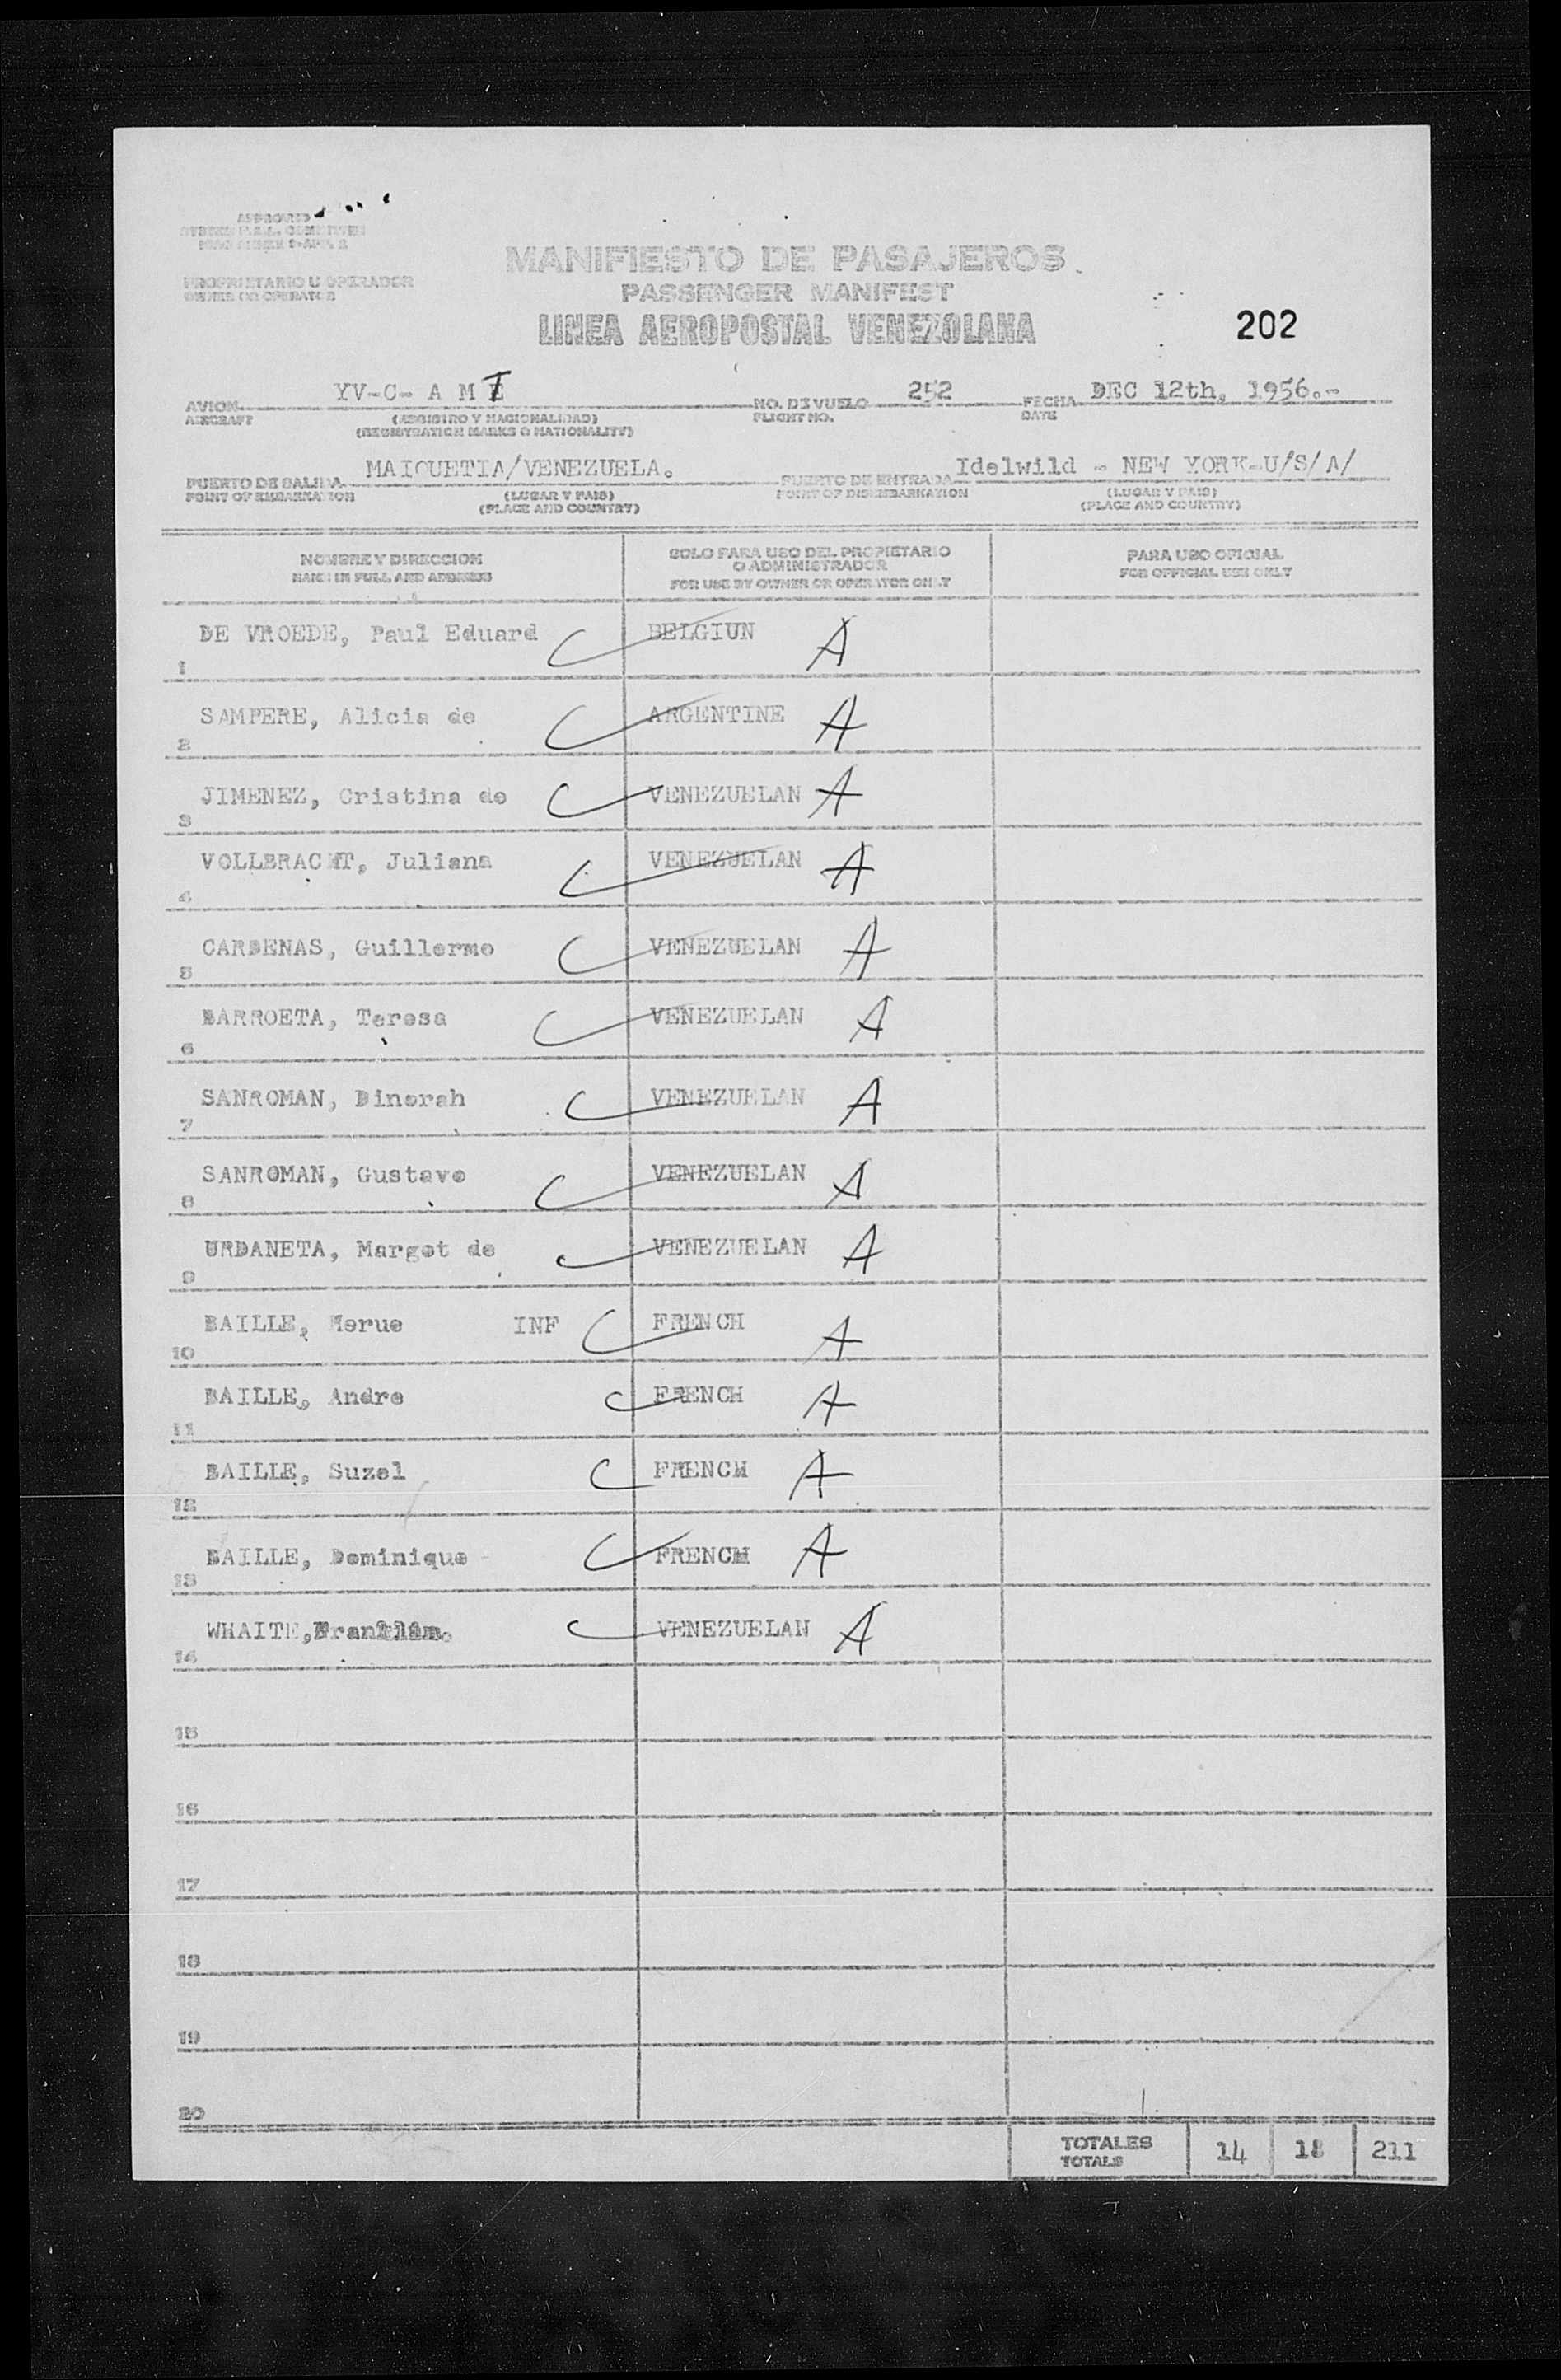 APPROVED
PROPRIETARIO U OPERADOR
OWNER OR OPERATOR
MANIFIESTO DE PASAJEROS
PASSENGER MANIFEST
LINEA AEROPOSTAL VENEZOLANA
202
AVION YV-C- A M NO. DE VUELO 252 FECHA DEC 12th, 1956.-
AIRCRAFT (REGISTRO Y NACIONALIDAD) FLIGHT NO. DATE
(REGISTRATION MARKS & NATIONALITY)
PUERTO DE SALIDA MAIQUETIA/VENEZUELA. PUERTO DE ENTRADA Idelwild - NEW YORK-U/S/A/
POINT OF EMBARKATION (LUGAR Y PAIS) POINT OF DISEMBARKATION (LUGAR Y PAIS)
(PLACE AND COUNTRY) (PLACE AND COUNTRY)
NOMBRE Y DIRECCION SOLO PARA USO DEL PROPIETARIO PARA USO OFICIAL
NAME IN FULL AND ADDRESS O ADMINISTRADOR FOR OFFICIAL USE ONLY
FOR USE BY OWNER OR OPERATOR ONLY
1 DE VROEDE, Paul Eduard BELGIUN A
2 SAMPERE, Alicia de ARGENTINE A
3 JIMENEZ, Cristina de VENEZUELAN A
4 VOLLBRACHT, Juliana VENEZUELAN A
5 CARDENAS, Guillermo VENEZUELAN A
6 BARROETA, Teresa VENEZUELAN A
7 SANROMAN, Dinorah VENEZUELAN A
8 SANROMAN, Gustavo VENEZUELAN A
9 URDANETA, Margot de VENEZUELAN A
10 BAILLE, Merue INF FRENCH A
11 BAILLE, Andre FRENCH A
12 BAILLE, Suzel FRENCH A
13 BAILLE, Dominique FRENCH A
14 WHAITE, VENEZUELAN A
15
16
17
18
19
20
TOTALES 14 18 211
TOTALS